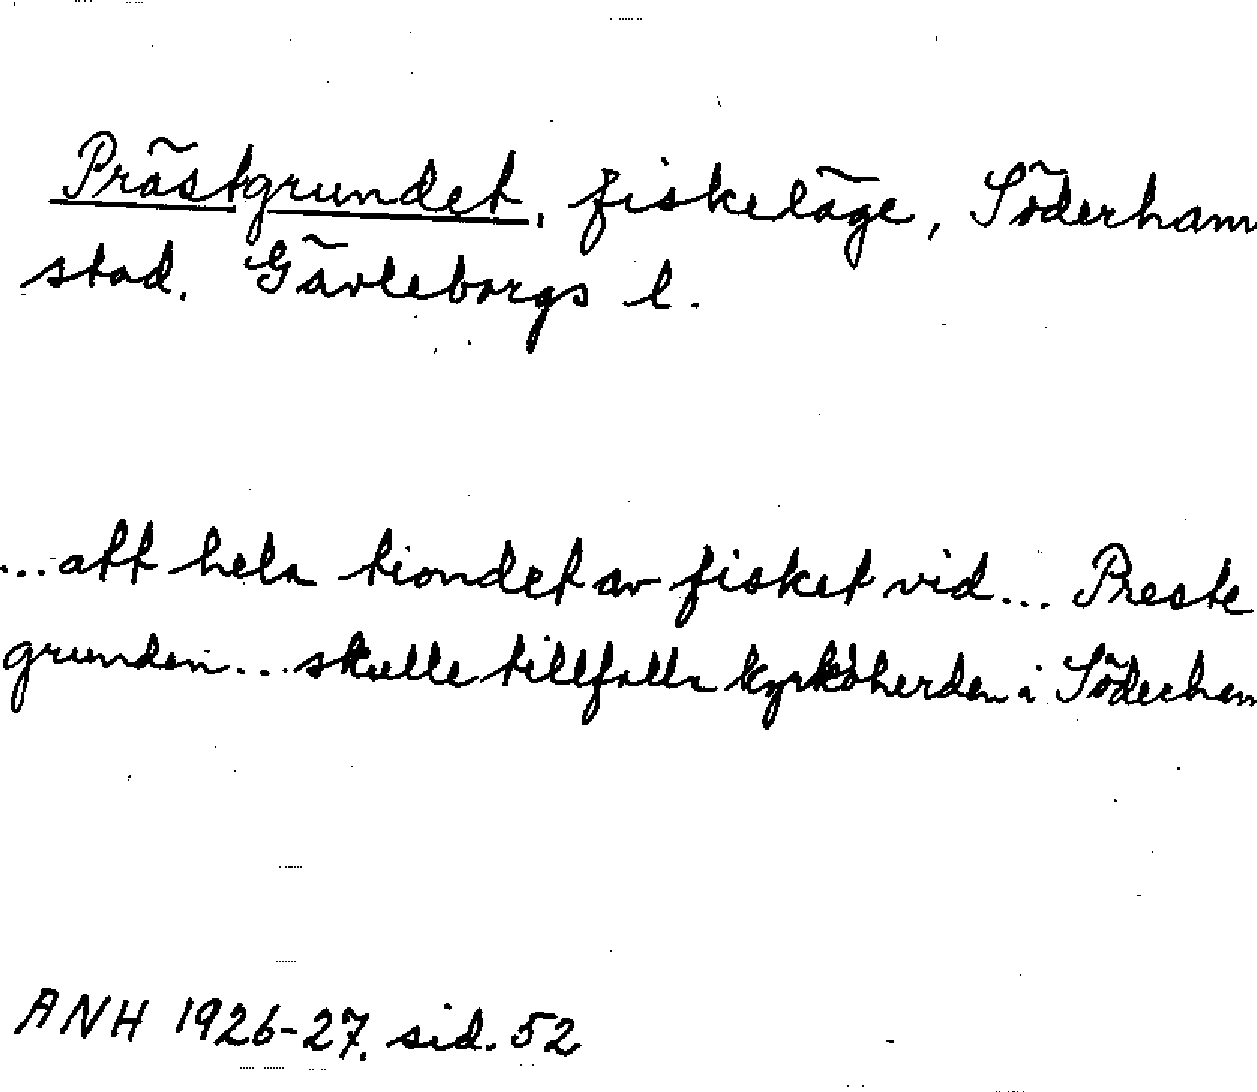 Prästgrundet, fiskeläge, Söderham
stad. Gävleborgs l.
... att hela tiondet av fisket vid ... Preste
grunden ... skulle tillfalla kyrkoherden i Söderham
ANH 1926-27. sid. 52